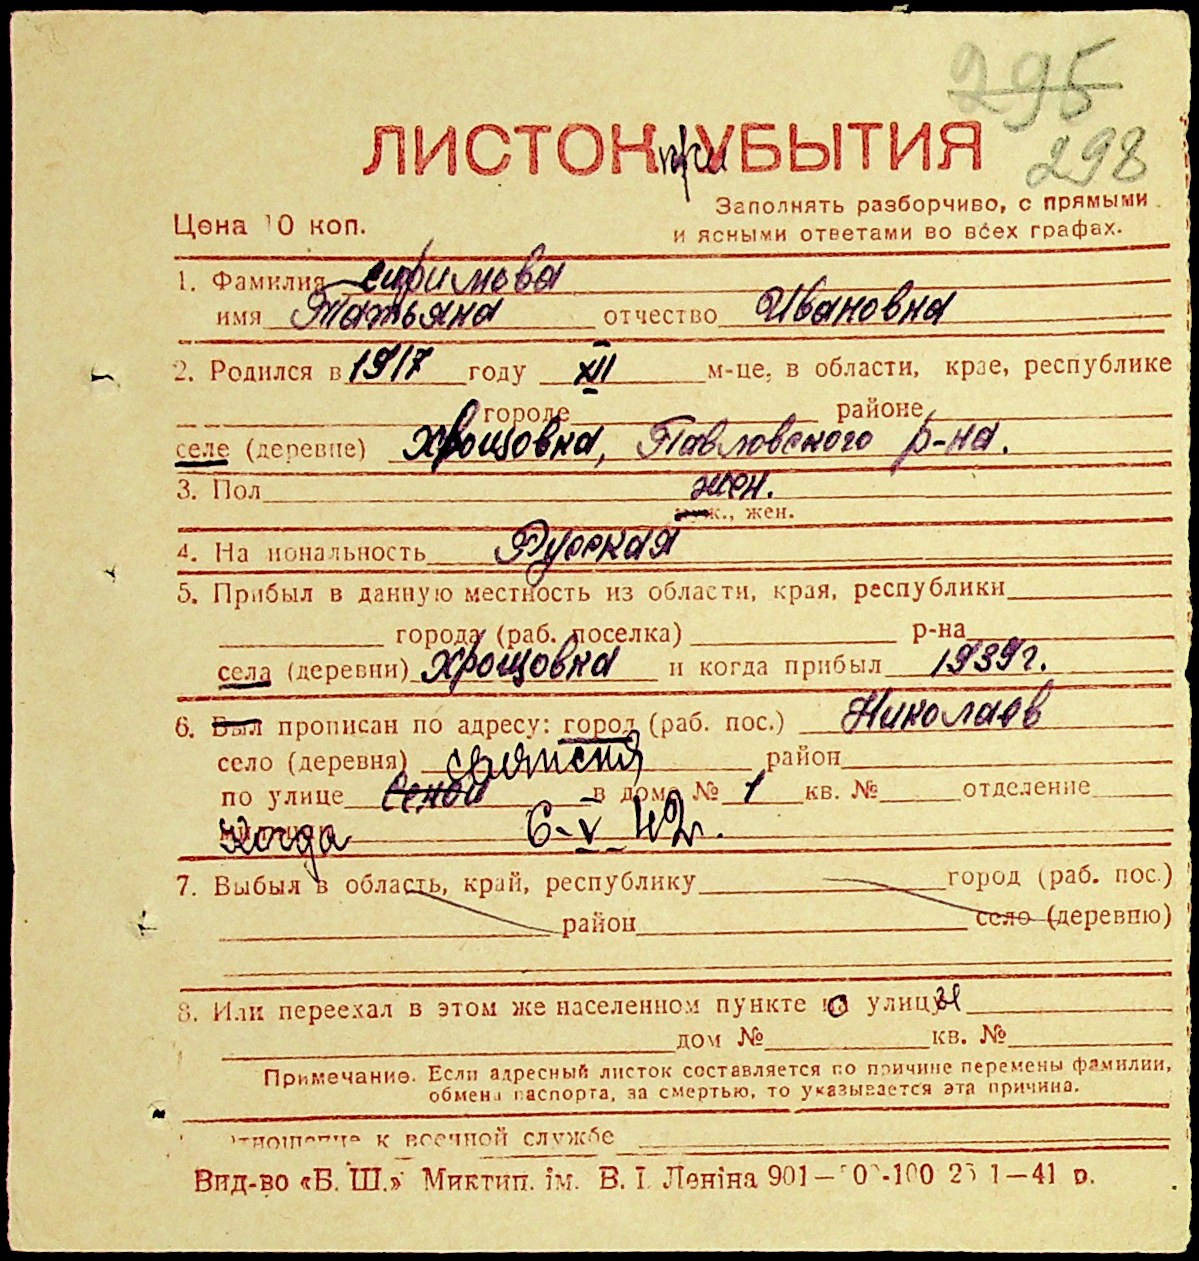 295
298
ЛИСТОК при УБЫТИЯ
Цена 10 коп.
Заполнять разборчиво, с прямыми
и ясными ответами во всех графах.
1. Фамилия Ефимова
имя Татьяна отчество Ивановна
2. Родился в 1917 году XII м-це, в области, крае, республике
городе районе
селе (деревне) Хрощовка, Павловского р-на.
3. Пол жен.
муж., жен.
4. Национальность Русская
5. Прибыл в данную местность из области, края, республики
города (раб. поселка) р-на
села (деревни) Хрощовка и когда прибыл 1939 г.
6. Был прописан по адресу: город (раб. пос.) Николаев
село (деревня) район
по улице Сеной в доме № 1 кв. № отделение
Когда 6-V 42 г.
7. Выбыл в область, край, республику город (раб. пос.)
район село (деревню)
8. Или переехал в этом же населенном пункте улицу
дом № кв. №
Примечание. Если адресный листок составляется по причине перемены фамилии,
обмена паспорта, за смертью, то указывается эта причина.
Отношение к военной службе
Вид-во «Б. Ш.» Миктип. ім. В. І. Леніна 901— 1—41 р.